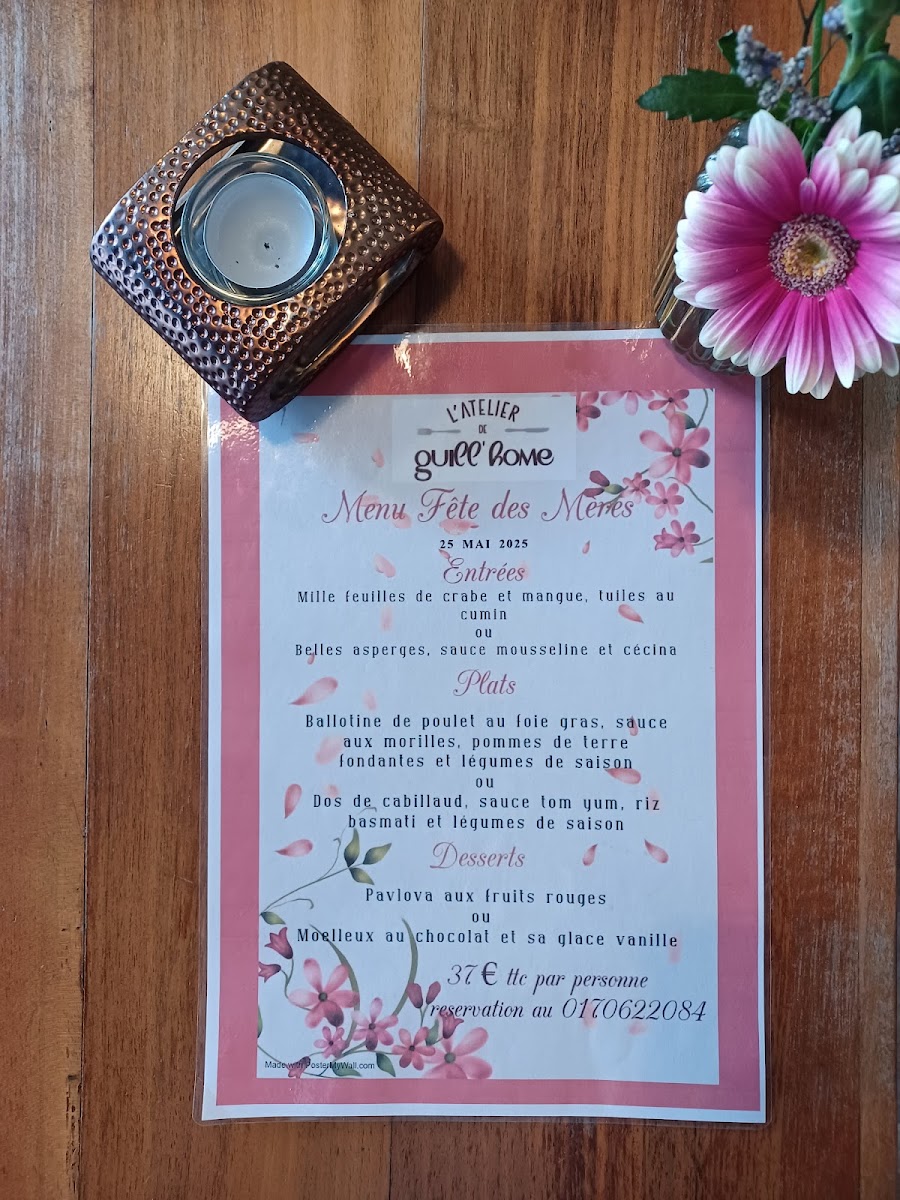 L'ATELIER
DE
guill'home
Menu Fête des Mères
25 MAI 2025
Entrées
Mille feuilles de crabe et mangue, tuiles au
cumin
ou
Belles asperges, sauce mousseline et cécina
Plats
Ballotine de poulet au foie gras, sauce
aux morilles, pommes de terre
fondantes et légumes de saison
ou
Dos de cabillaud, sauce tom yum, riz
basmati et légumes de saison
Desserts
Pavlova aux fruits rouges
ou
Moelleux au chocolat et sa glace vanille
37 € ttc par personne
reservation au 0170622084
Made with PosterMyWall.com